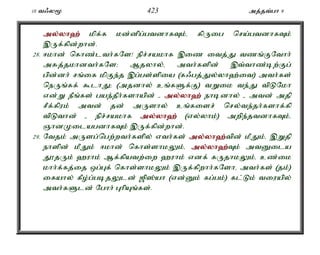 10 வஃலமூ 423 அத்தவ்பா 9
அல்லாஹ் மிக்க மன்னிப்பவனாகவும், கிருபை செய்பவனாகவும்
இருக்கின்றான்.
28. ஈமான் கொண்டவர்களே! நிச்சயமாக இணை வைத்து வணங்குவோர்
அசுத்தமானவர்களே; ஆதலால், அவர்களின் இவ்வாண்டிற்குப்
பின்னர் சங்கை மிகுந்த இப்பள்ளியை (கஃபத்துல்லாஹ்வை) அவர்கள்
நெருங்கக் கூடாது; (அதனால் உங்களுக்கு) வறுமை வந்து விடுமோ
என்று நீங்கள் பயந்தீர்களாயின் - அல்லாஹ் நாடினால் - அவன் அதி
சீக்கிரம் அவன் தன் அருளால் உங்களைச் செல்வந்தர்களாக்கி
விடுவான் - நிச்சயமாக அல்லாஹ் (எல்லாம்) அறிந்தவனாகவும்,
ஞானமுடையபனாகவும் இருக்கின்றான்.
29. வேதம் அருளப்பெற்றவர்களில் எவர்கள் அல்லாஹ்வின் மீதும், இறுதி
நாளின் மீதும் ஈமான் கொள்ளாமலும், அல்லாஹ்வும் அவனுடைய
தூதரும் ஹராம் ஆக்கியவற்றை ஹராம் எனக் கருதாமலும், உண்மை
மார்க்கத்தை ஒப்புக் கொள்ளாமலும் இருக்கிறார்களோ, அவர்கள் (தம்)
கையால் கீழ்ப்படிதலுடன் ஜிஸ்யா (என்னும் கப்பம்) கட்டும் வரையில்
அவர்களுடன் போர் புரியுங்கள்.